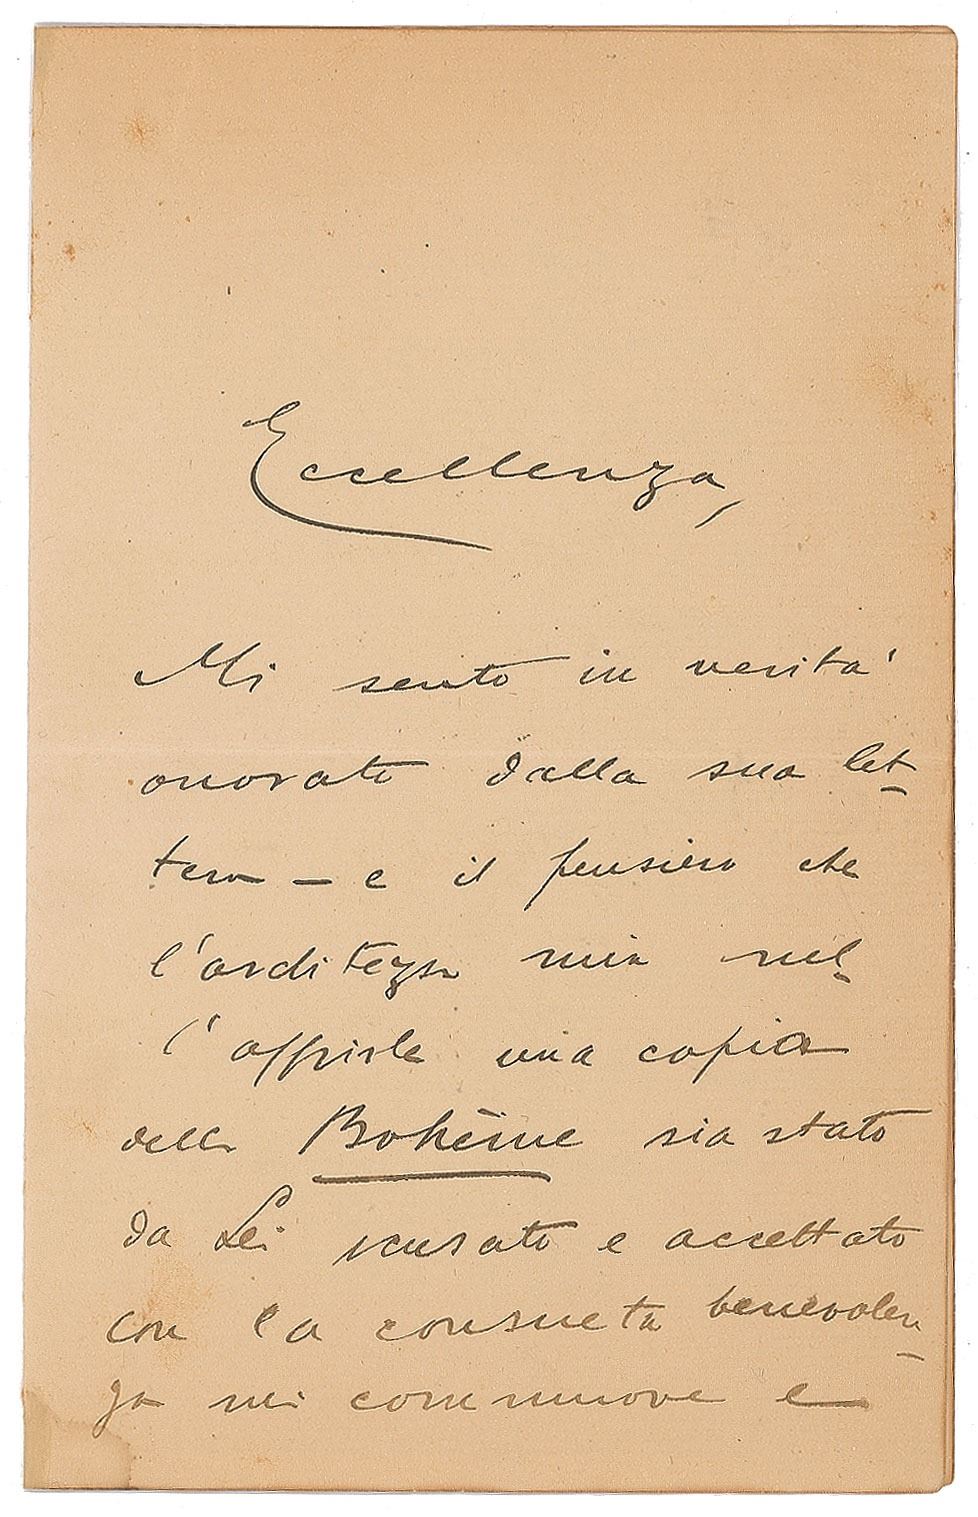 Eccellenza,
Mi sento in verita'
onorato dalla sua let-
tera – e il pensiero che
l'arditezza mia nel-
l'offrirle una copia
della Bohème sia stato
da Lei scusato e accettato
con la consueta benevolen-
za mi commuove e